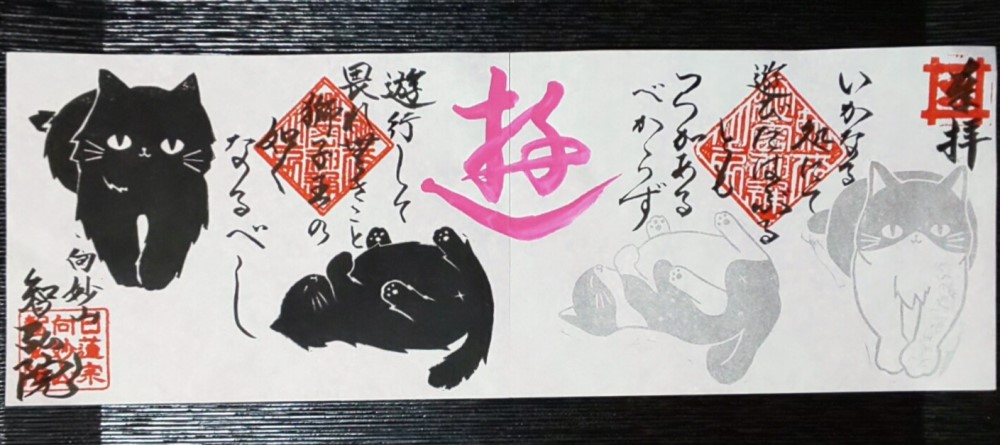 奉拝
いかなる
処にて
遊びたはふる
とも
つつがある
べからず
遊
遊行して
畏れ無きこと
獅子王の
如く
なるべし
向妙山
日蓮宗
向妙山